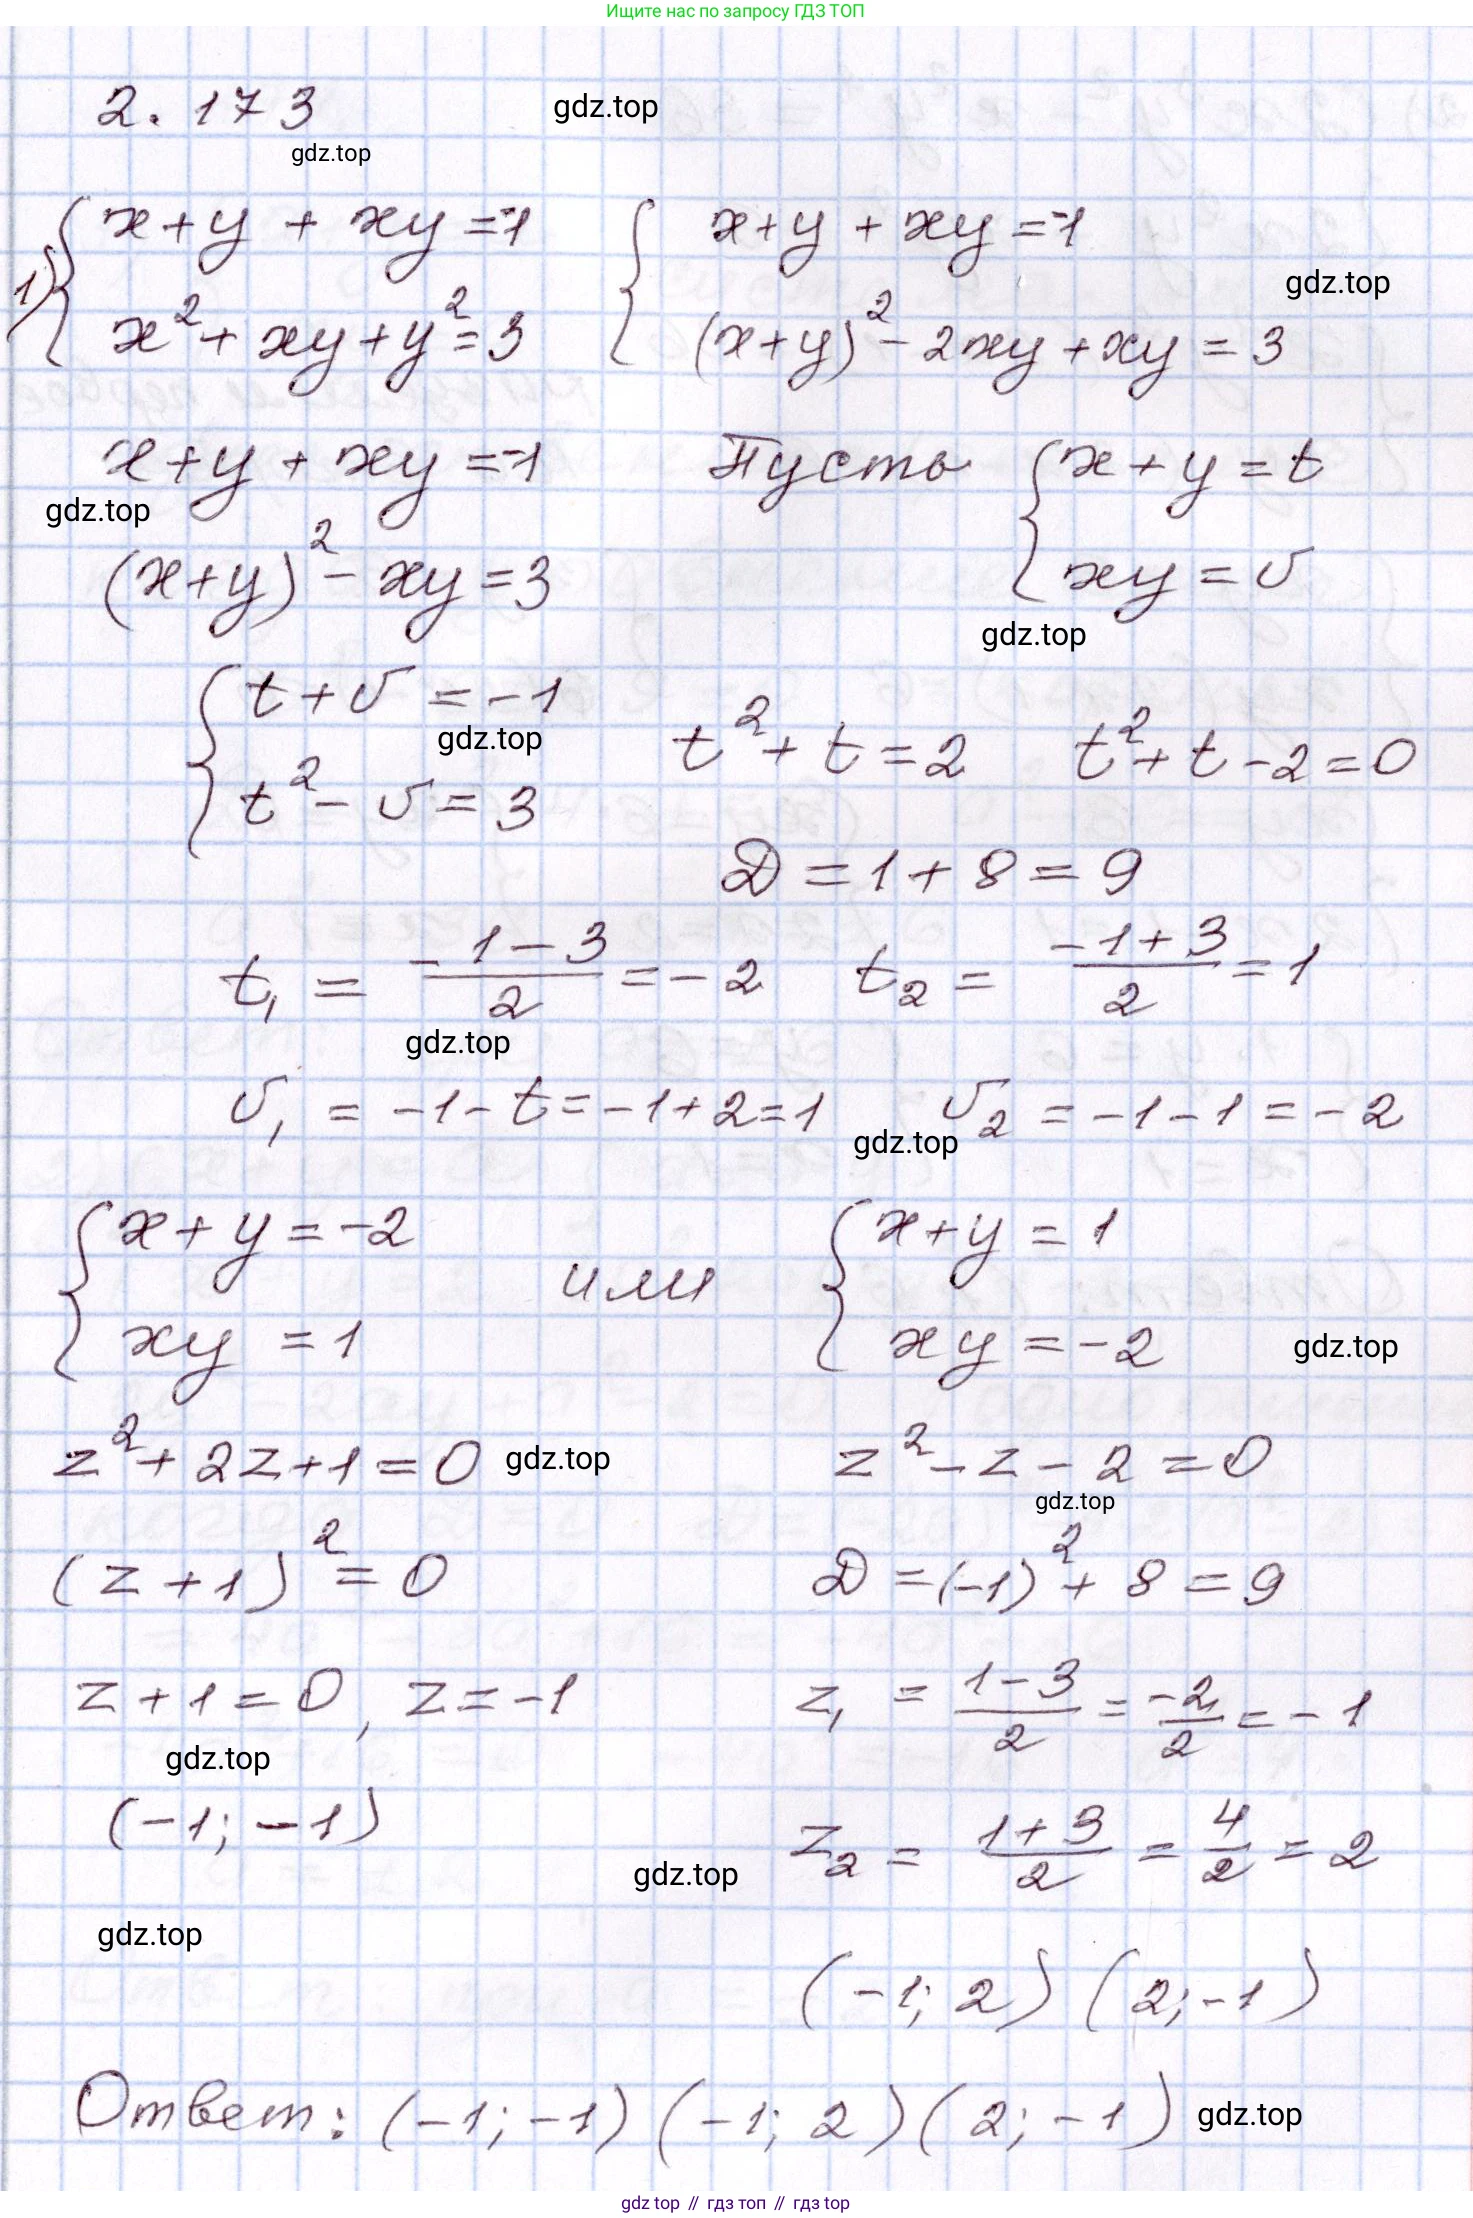 Ищите нас по запросу ГДЗ ТОП
2.173 gdz.top
gdz.top
1) { x+y + xy = -1 { x+y + xy = -1
gdz.top
x² + xy + y² = 3 (x+y)² - 2xy + xy = 3
x+y + xy = -1 Пусть { x+y = t
gdz.top
(x+y)² - xy = 3 xy = v
gdz.top
{ t + v = -1
gdz.top
t² + t = 2 t² + t - 2 = 0
t² - v = 3
D = 1 + 8 = 9
t₁ = (-1-3)/2 = -2 t₂ = (-1+3)/2 = 1
gdz.top
v₁ = -1 - t = -1 + 2 = 1 v₂ = -1 - 1 = -2
gdz.top
{ x+y = -2 или { x+y = 1
xy = 1 xy = -2 gdz.top
z² + 2z + 1 = 0 gdz.top z² - z - 2 = 0
gdz.top
(z+1)² = 0 D = (-1)² + 8 = 9
z + 1 = 0, z = -1 z₁ = (1-3)/2 = -2/2 = -1
gdz.top
(-1; -1) z₂ = (1+3)/2 = 4/2 = 2
gdz.top
gdz.top
(-1; 2) (2; -1)
Ответ: (-1; -1) (-1; 2) (2; -1) gdz.top
gdz top // гдз топ // гдз top